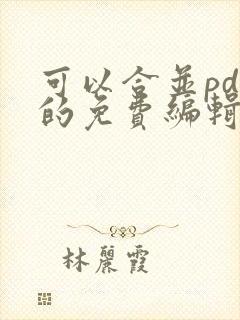 可以合並pd
的免費編輯
林麗霞